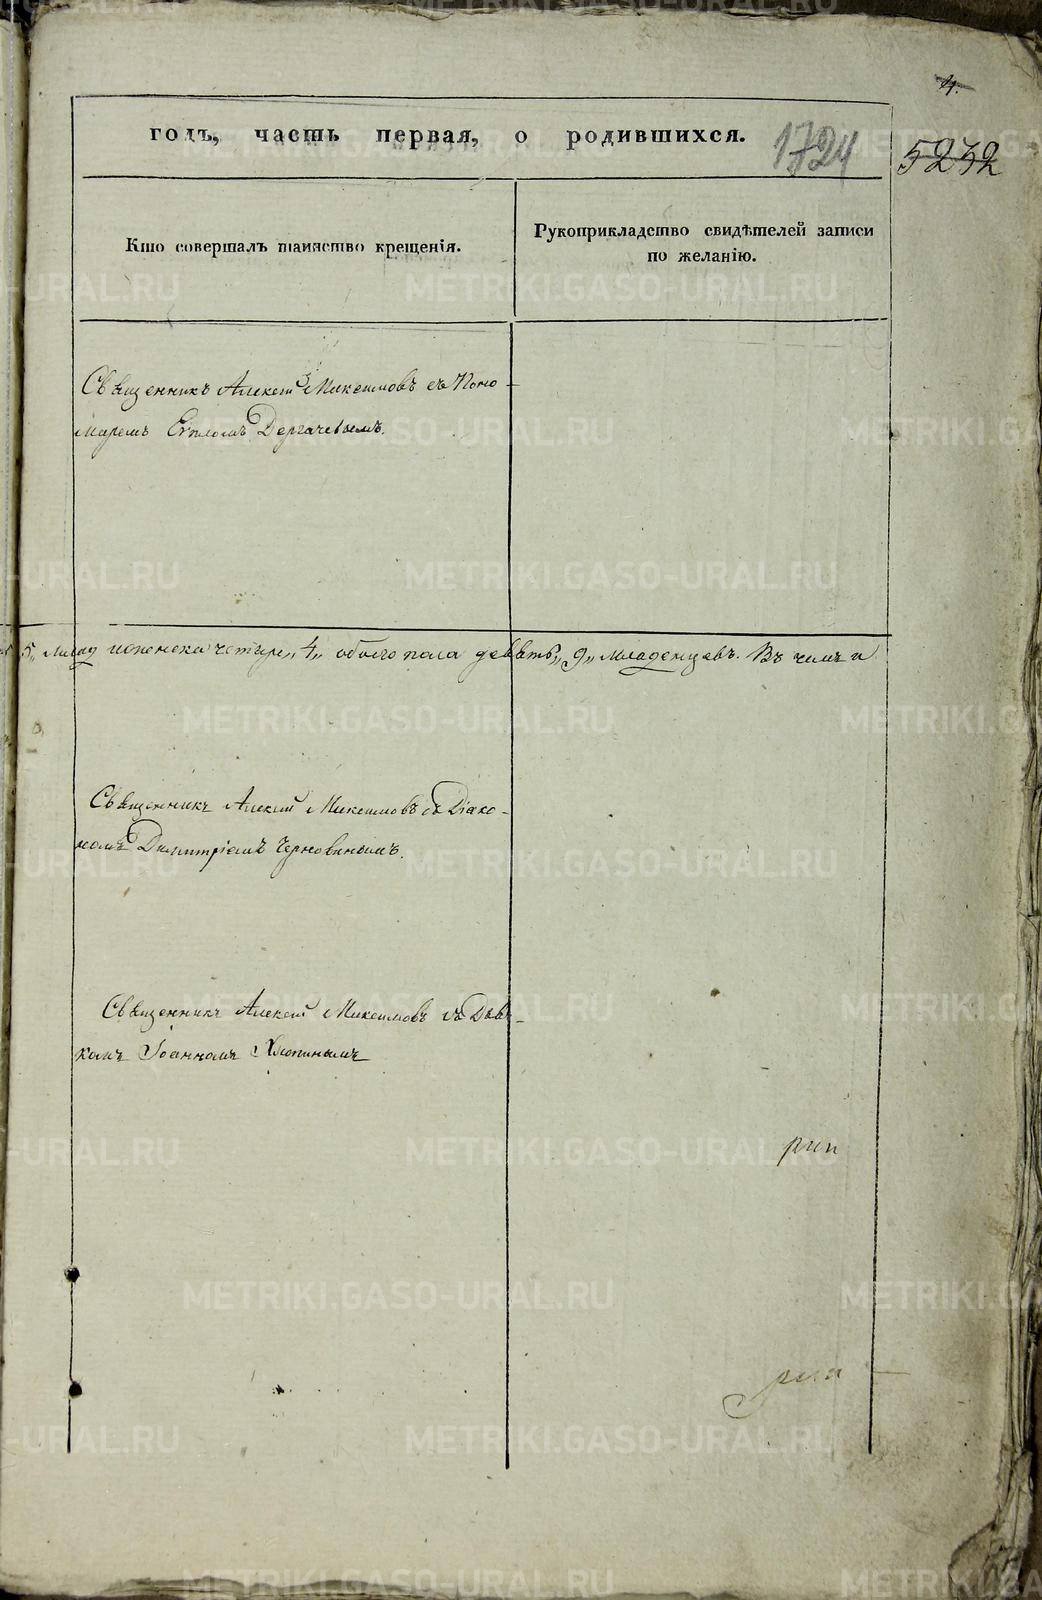 4.
годъ, часть первая, о родившихся.
1724
5232
Кто совершалъ таинство крещенія.
Рукоприкладство свидѣтелей записи
по желанію.
Священникъ Алексій Максимовъ съ Поно-
маремъ Дергачевымъ.
5,, женска четыре,, 4,, обоего пола девять,, 9,, младенцевъ. Въ чемъ и
Священникъ Алексій Максимовъ съ Діако-
номъ Димитріемъ Черновинымъ.
Священникъ Алексій Максимовъ съ Дья-
комъ Іоанномъ
METRIKI.GASO-URAL.RU